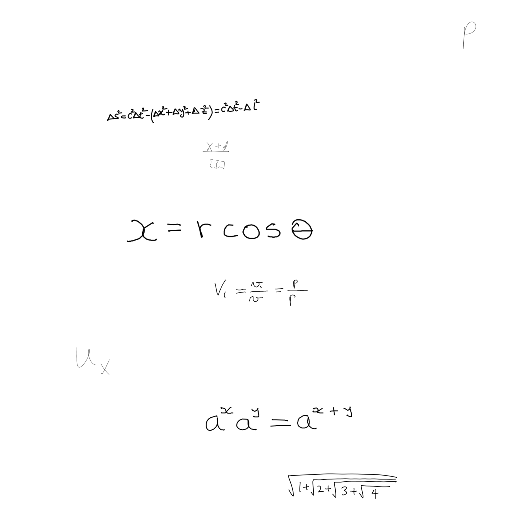 P
Δs²=c²Δt²-(Δx²+Δy²+Δz²)=c²Δt²-Δl²
x = r cos θ
u_x
a^x a^y = a^(x+y)
√(1+√(2+√(3+√4)))